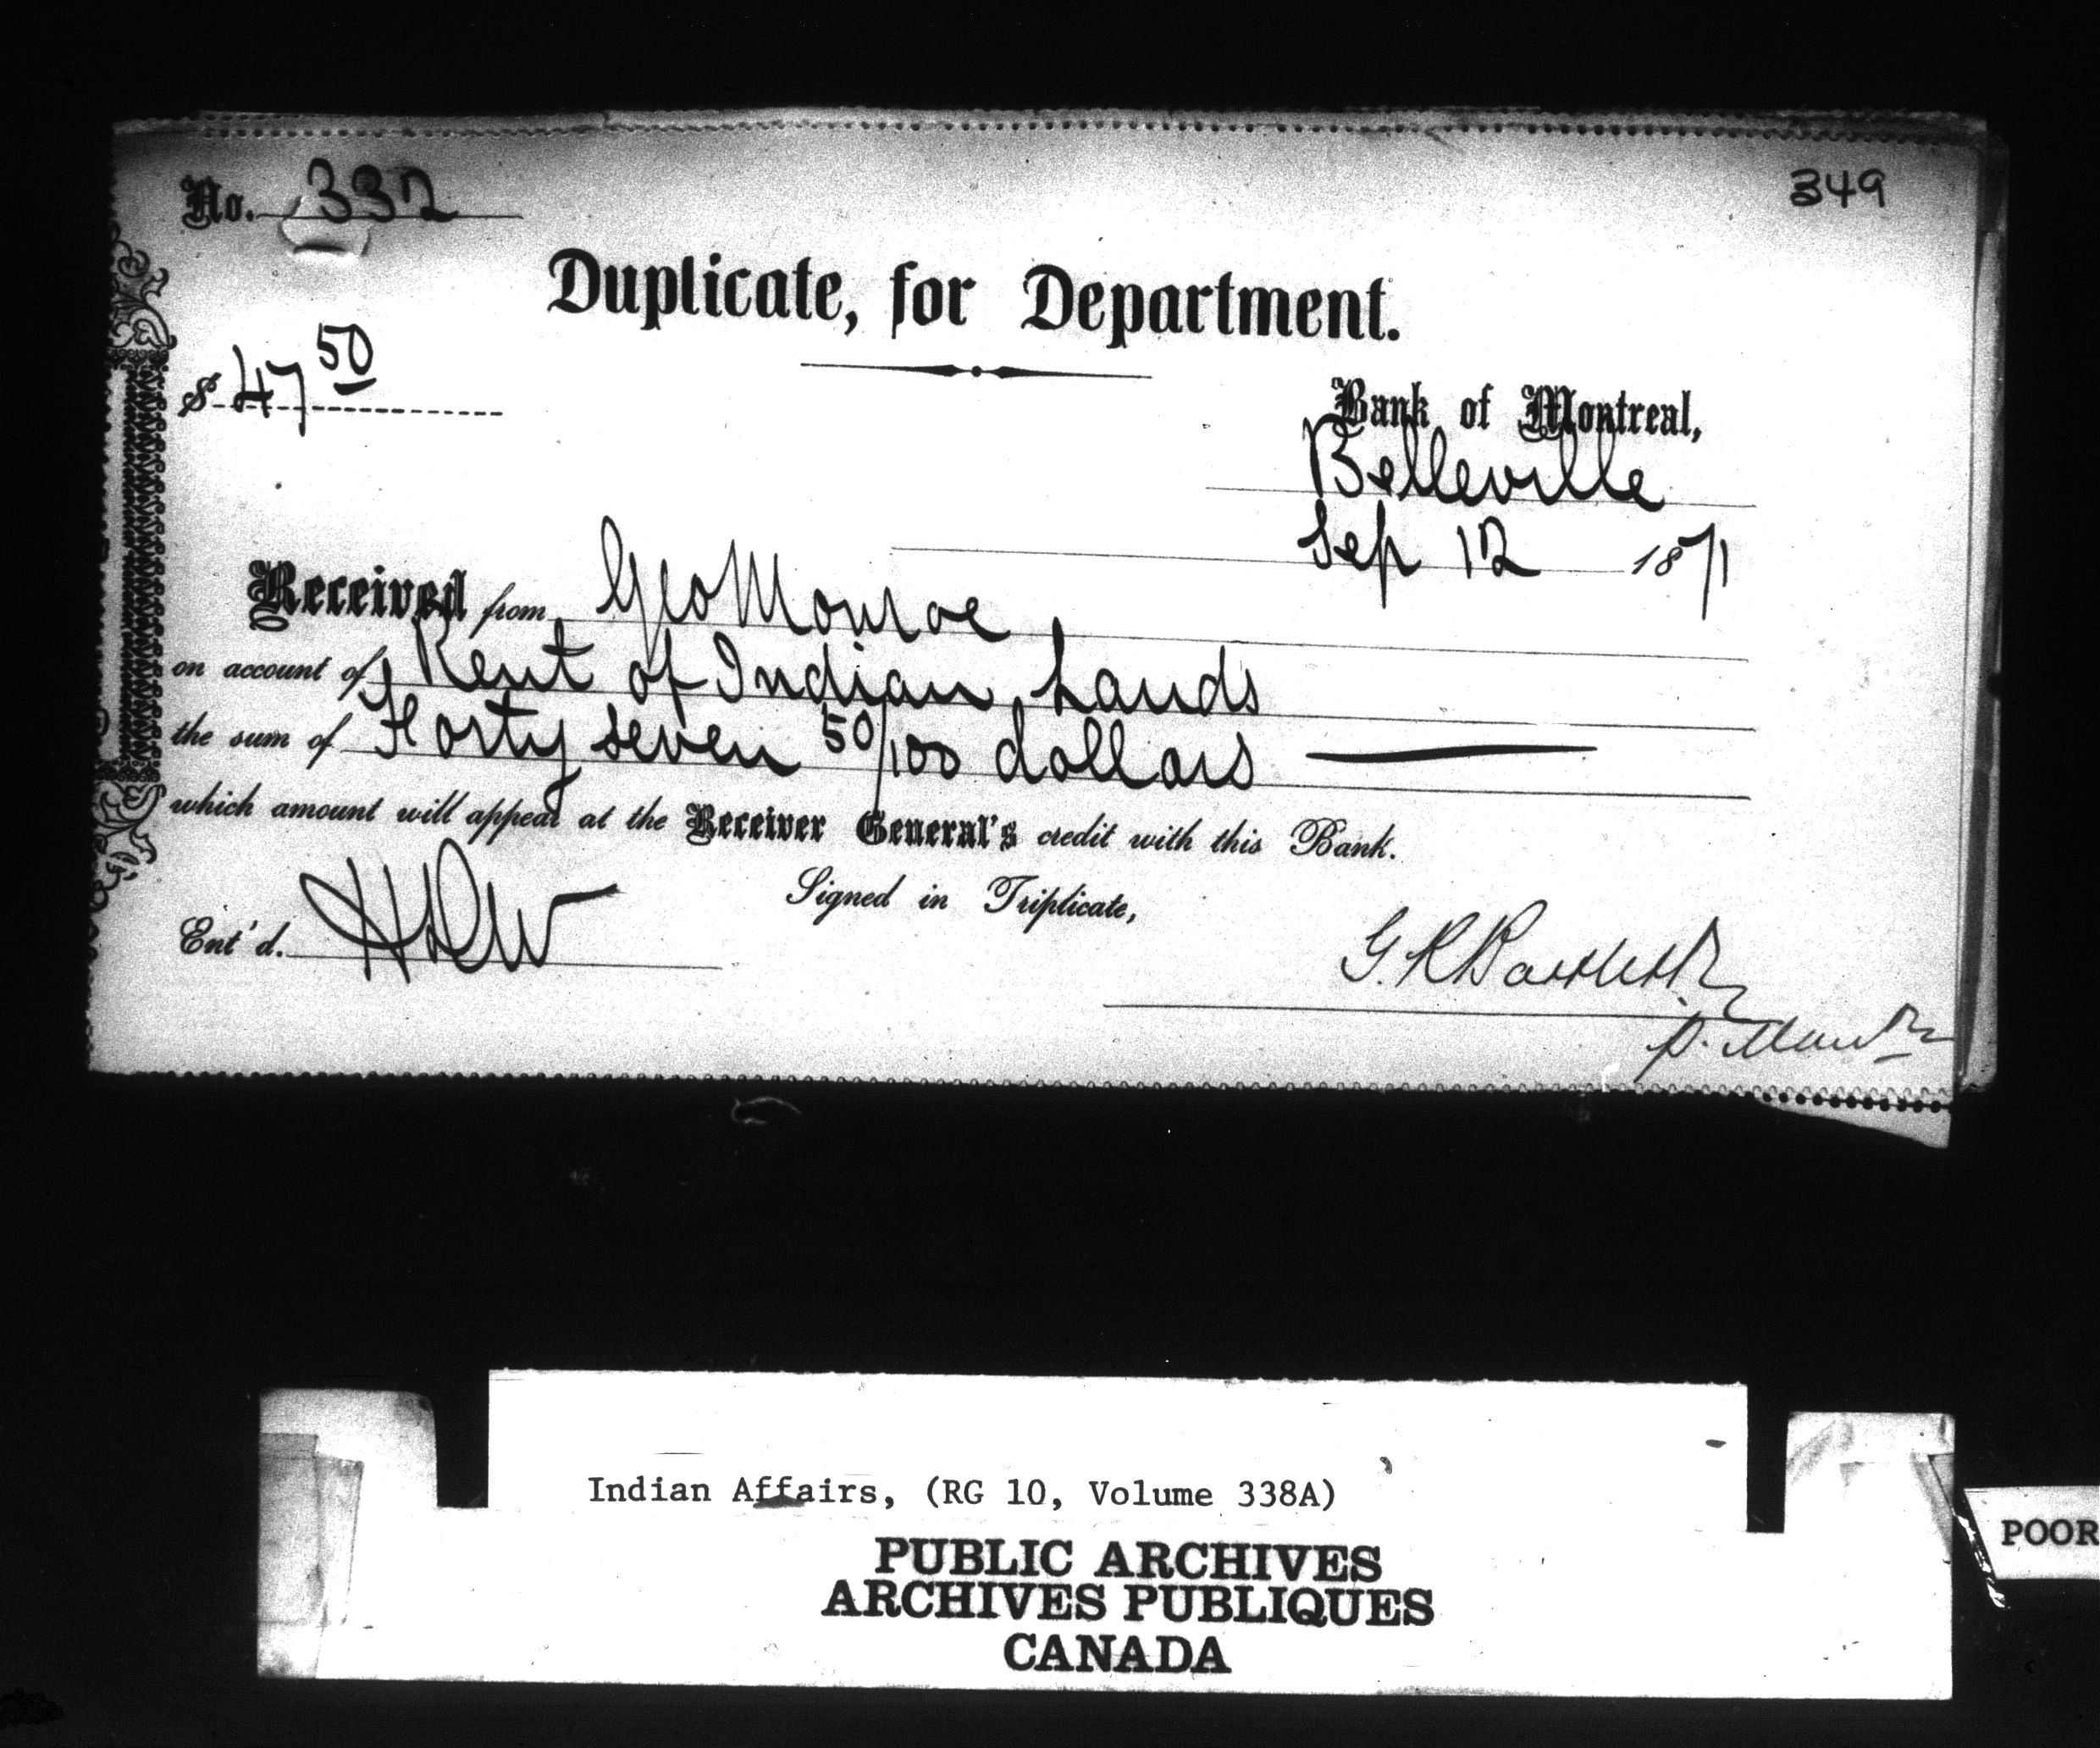 No. 332
349
Duplicate, for Department.
$ 47 50
Bank of Montreal,
Belleville
Sep 12 1871
Received from Geo Monroe
on account of Rent of Indian Lands
the sum of Forty seven 50/100 dollars
which amount will appear at the Receiver General's credit with this Bank.
Signed in Triplicate,
Ent'd.
G. R Bartlett
Indian Affairs, (RG 10, Volume 338A)
PUBLIC ARCHIVES
ARCHIVES PUBLIQUES
CANADA
POOR